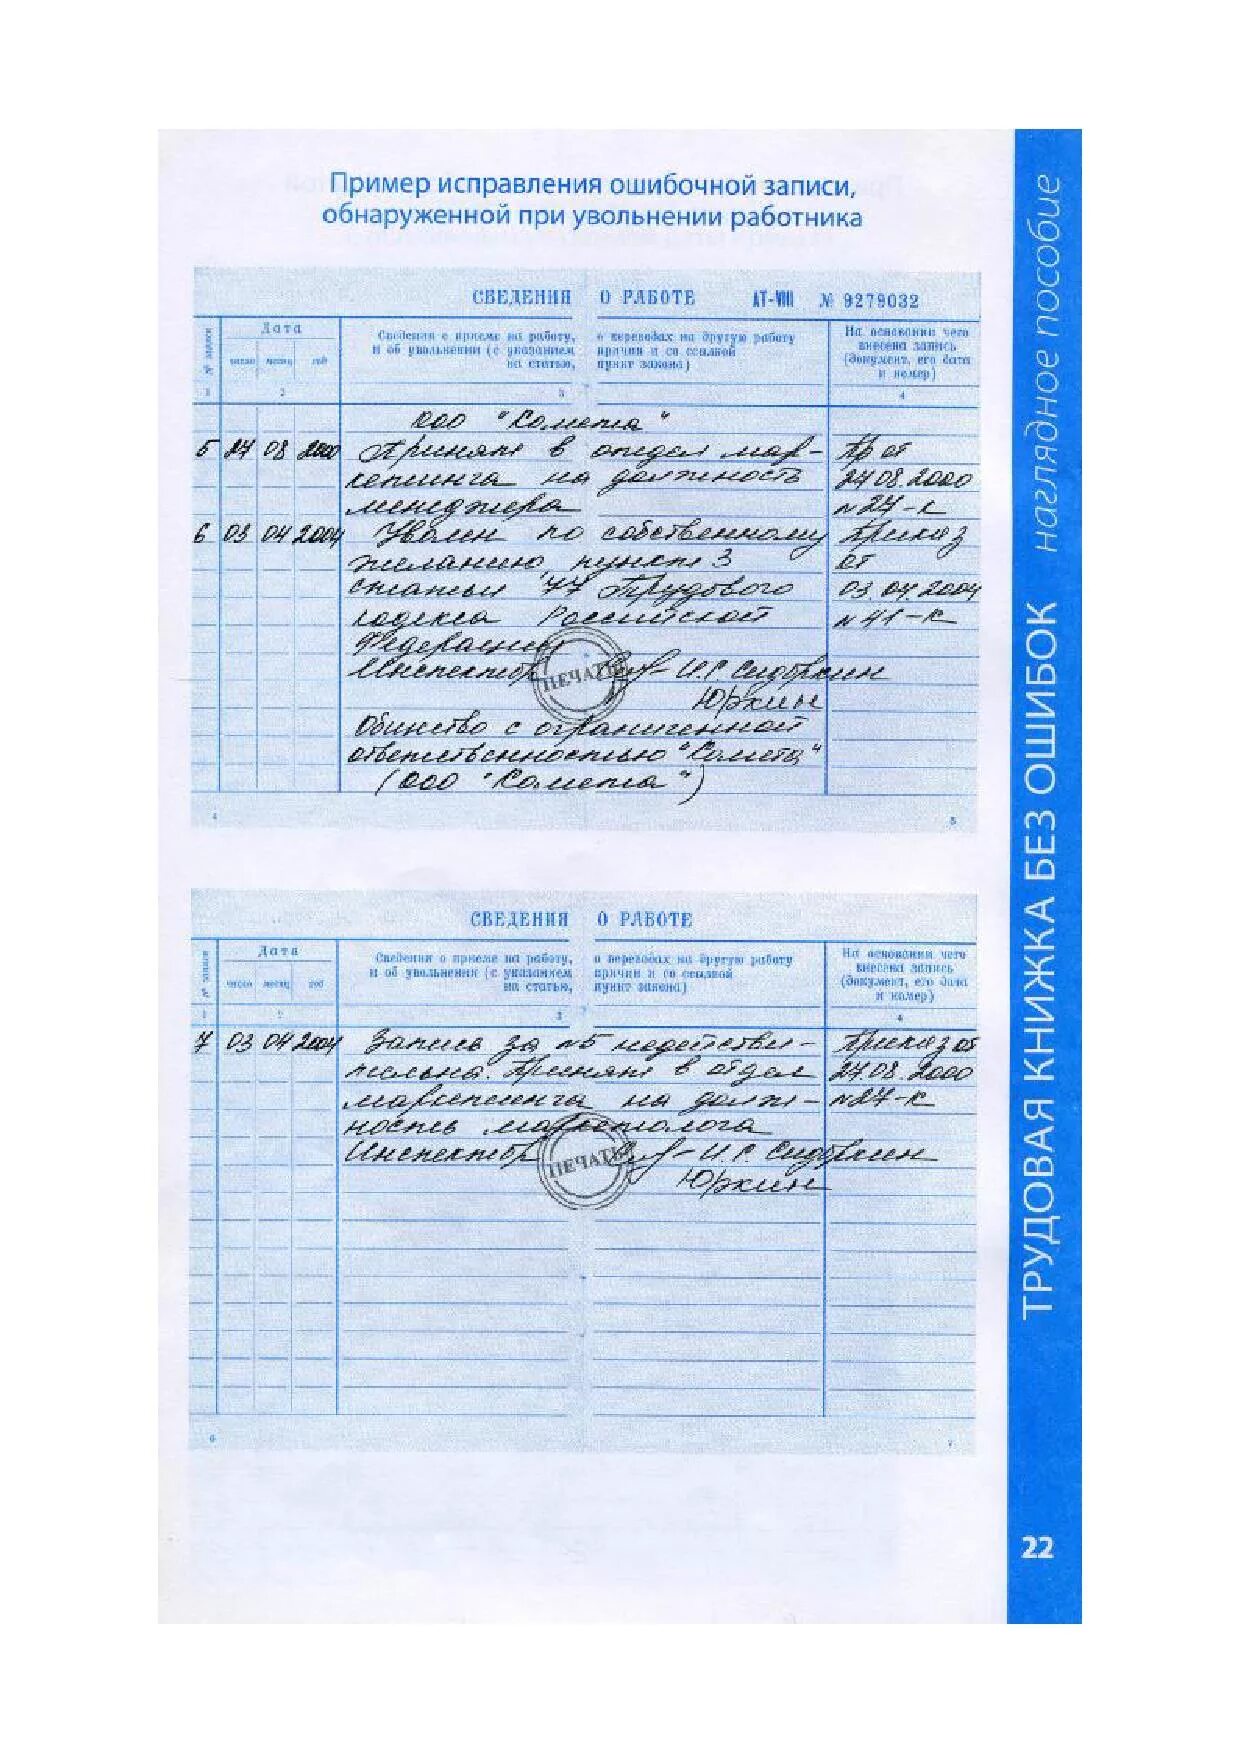 Пример исправления ошибочной записи,
обнаруженной при увольнении работника
СВЕДЕНИЯ О РАБОТЕ АТ-VIII № 9279032
№ записи
Дата
число месяц год
Сведения о приеме на работу, о переводах на другую работу
и об увольнении (с указанием причин и со ссылкой
на статью, пункт закона)
На основании чего
внесена запись
(документ, его дата
и номер)
1 2 3 4
ООО "Комета"
5 27 08 2000 Принят в отдел мар- Пр от
кетинга на должность 27.08.2000
менеджера №27-к
6 03 04 2004 Уволен по собственному Приказ
желанию, пункт 3 от
статьи 77 Трудового 03.04.2004
кодекса Российской №41-к
Федерации
Инспектор И.С. Сидоркин
ПЕЧАТЬ
Юркин
Общество с ограниченной
ответственностью "Комета"
(ООО "Комета")
4 5
СВЕДЕНИЯ О РАБОТЕ
№ записи
Дата
число месяц год
Сведения о приеме на работу, о переводах на другую работу
и об увольнении (с указанием причин и со ссылкой
на статью, пункт закона)
На основании чего
внесена запись
(документ, его дата
и номер)
1 2 3 4
7 03 04 2004 Запись за №5 недействи- Приказ от
тельна. Принят в отдел 27.08.2000
маркетинга на долж- №27-к
ность маркетолога
Инспектор И.С. Сидоркин
ПЕЧАТЬ
Юркин
6 7
ТРУДОВАЯ КНИЖКА БЕЗ ОШИБОК наглядное пособие
22